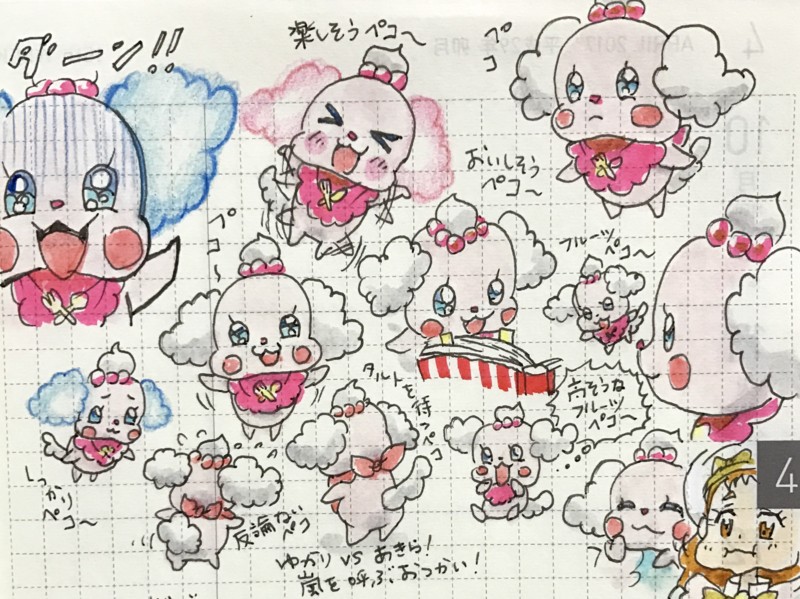 ダーン!!
楽しそうペコ〜
ペコ
おいしそう
ペコ〜
ペコ〜
フルーツ
ペコ〜
タルトを待つペコ
高そうな
フルーツ
ペコ〜
しっ
かり
ペコ〜
反論ない
ペコ
ゆかり vs あきら!
嵐を呼ぶおつかい!
4